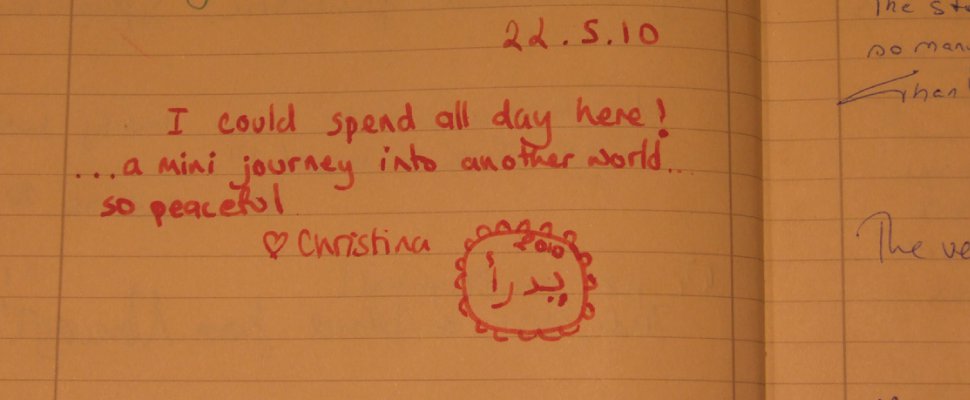 22.5.10
I could spend all day here!
...a mini journey into another world...
so peaceful
♡ Christina
2010
The
so man
The ve